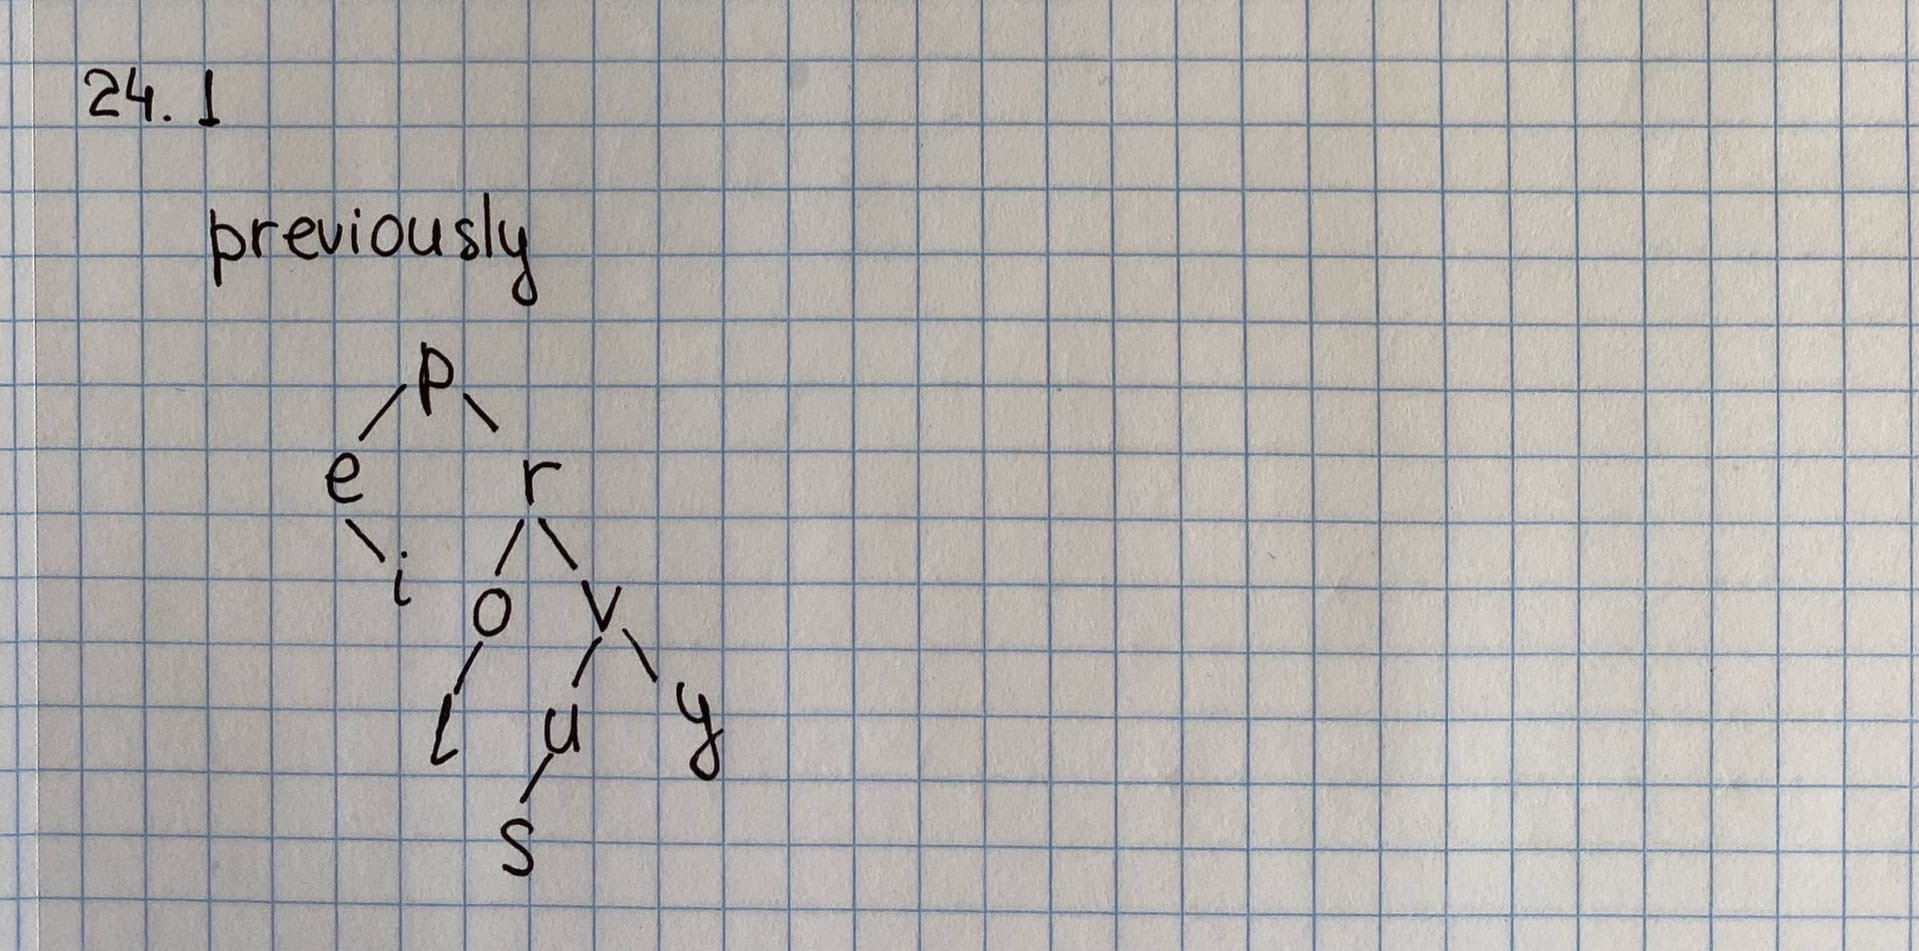 24.1
previously
p
e r
i o v
l u y
s